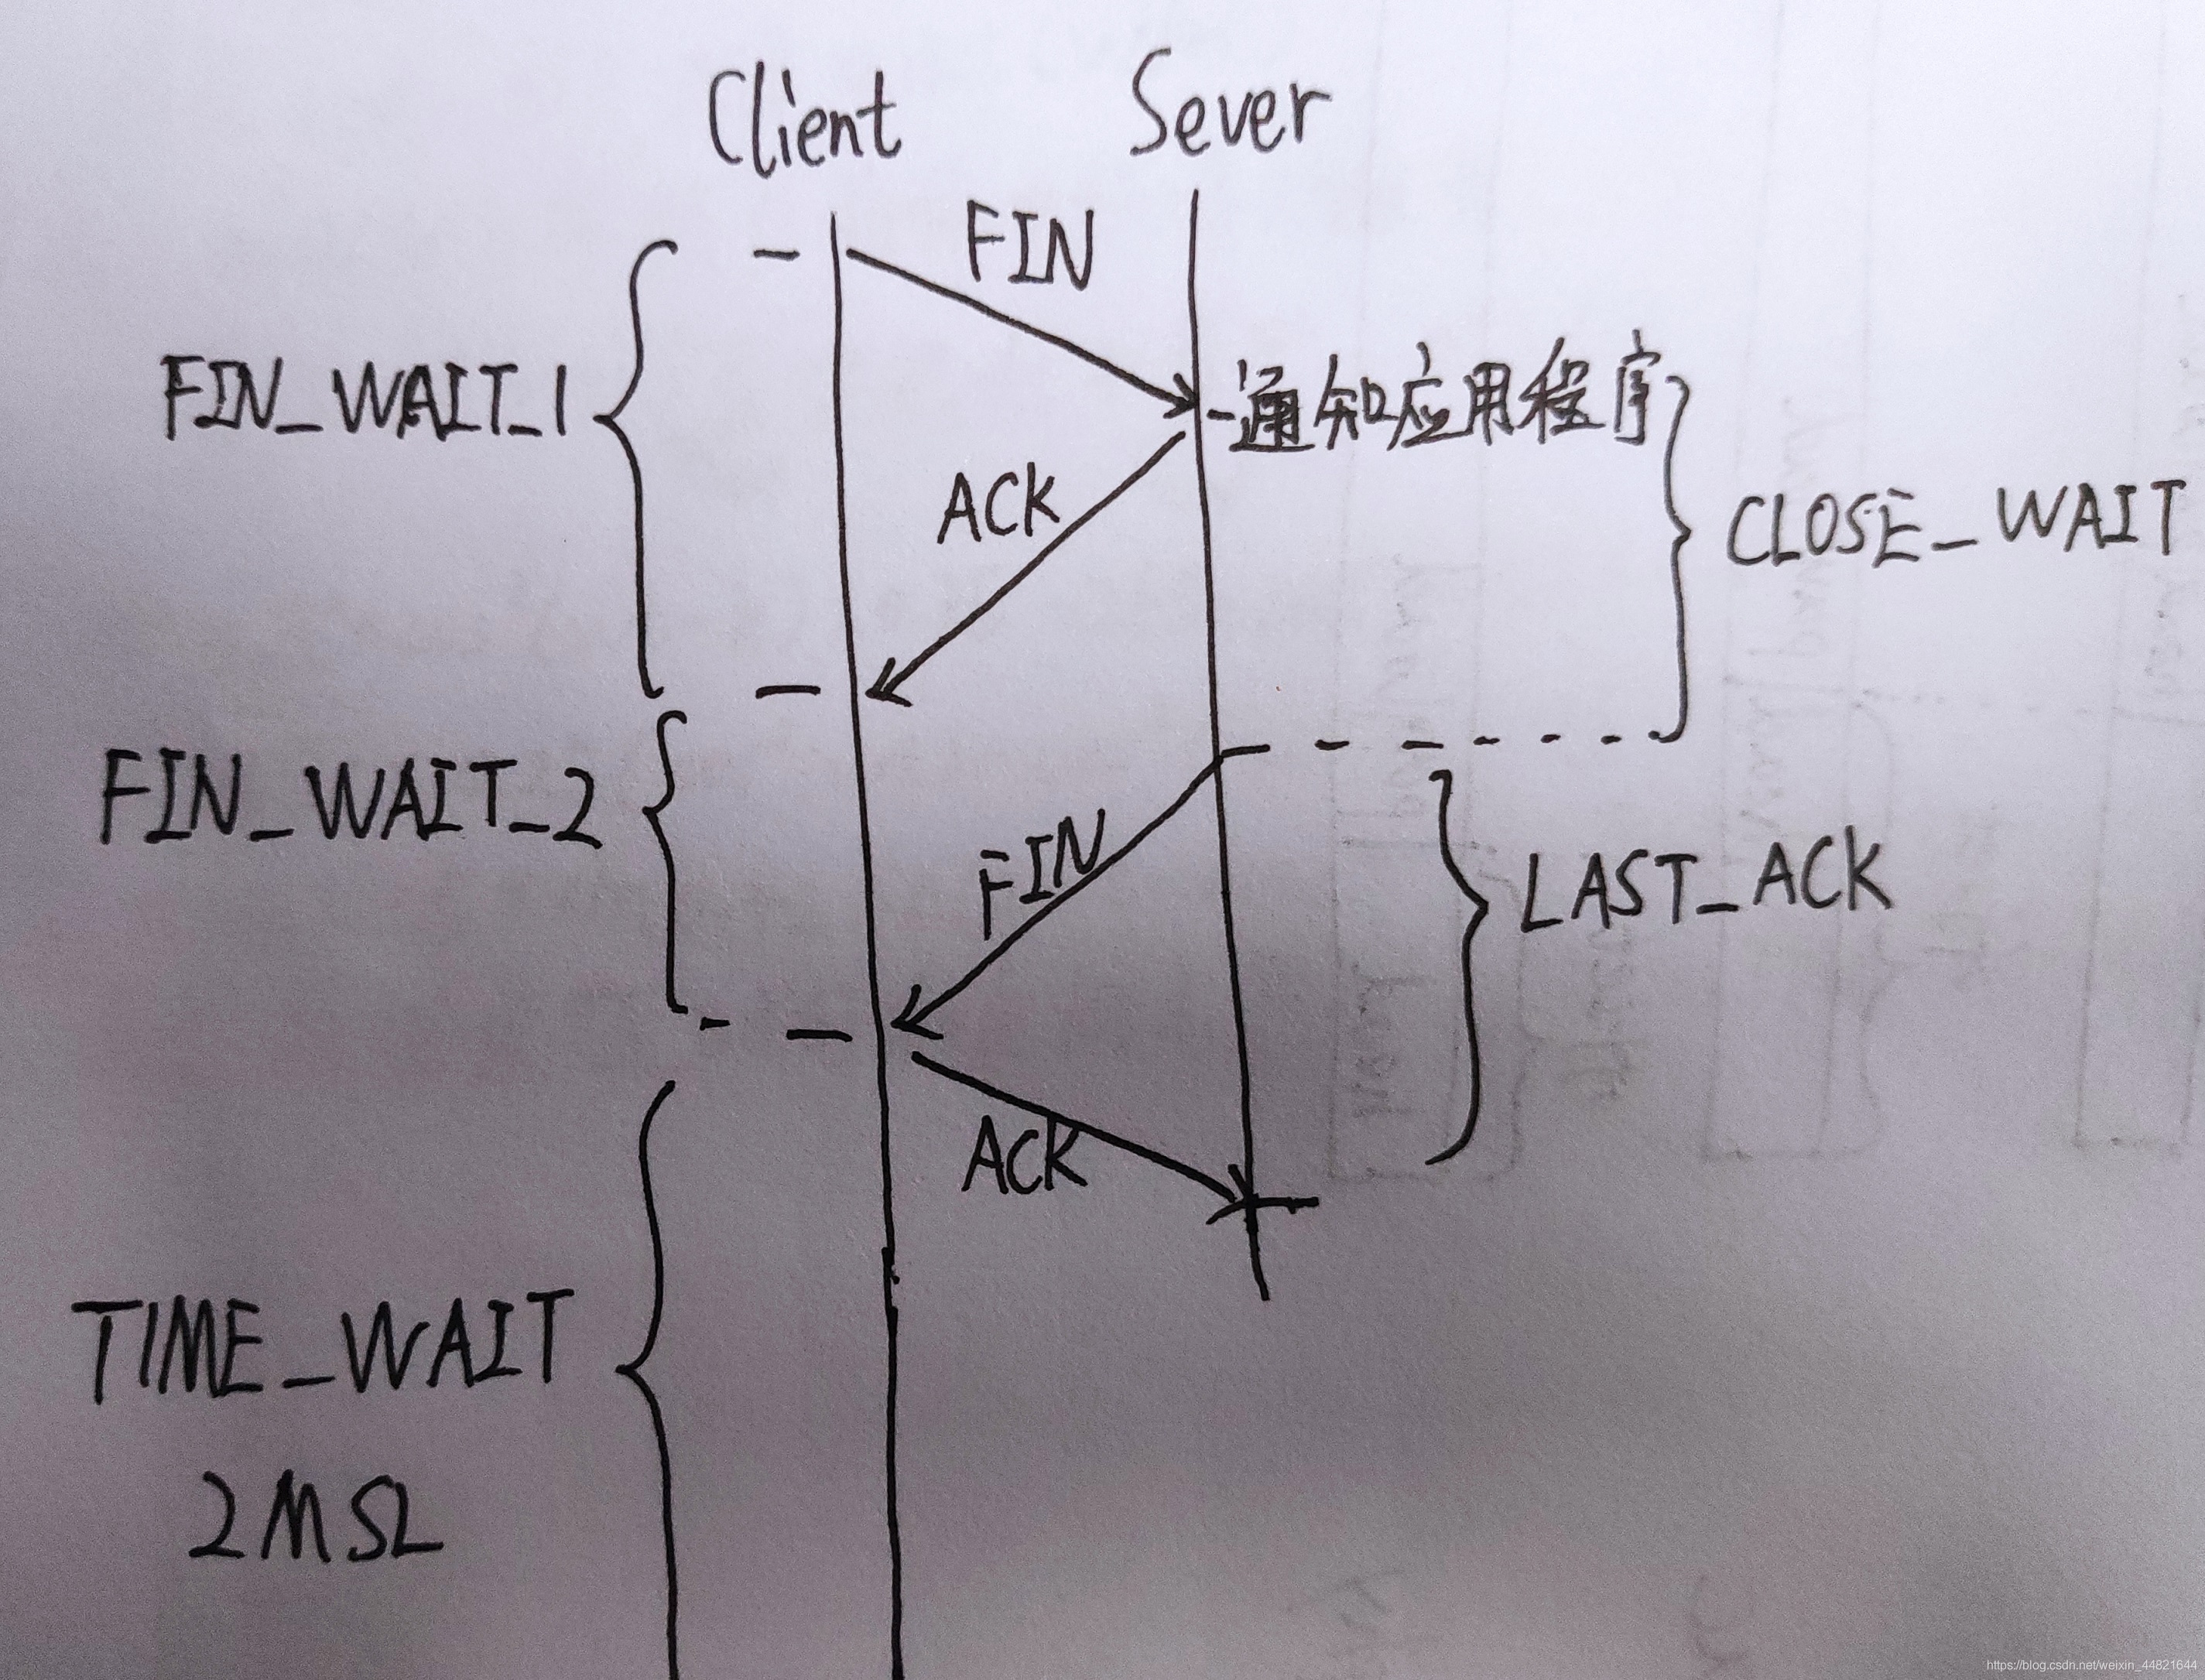 Client
Sever
FIN
FIN_WAIT_1
通知应用程序
ACK
CLOSE_WAIT
FIN_WAIT_2
FIN
LAST_ACK
ACK
TIME_WAIT
2MSL
https://blog.csdn.net/weixin_44821644